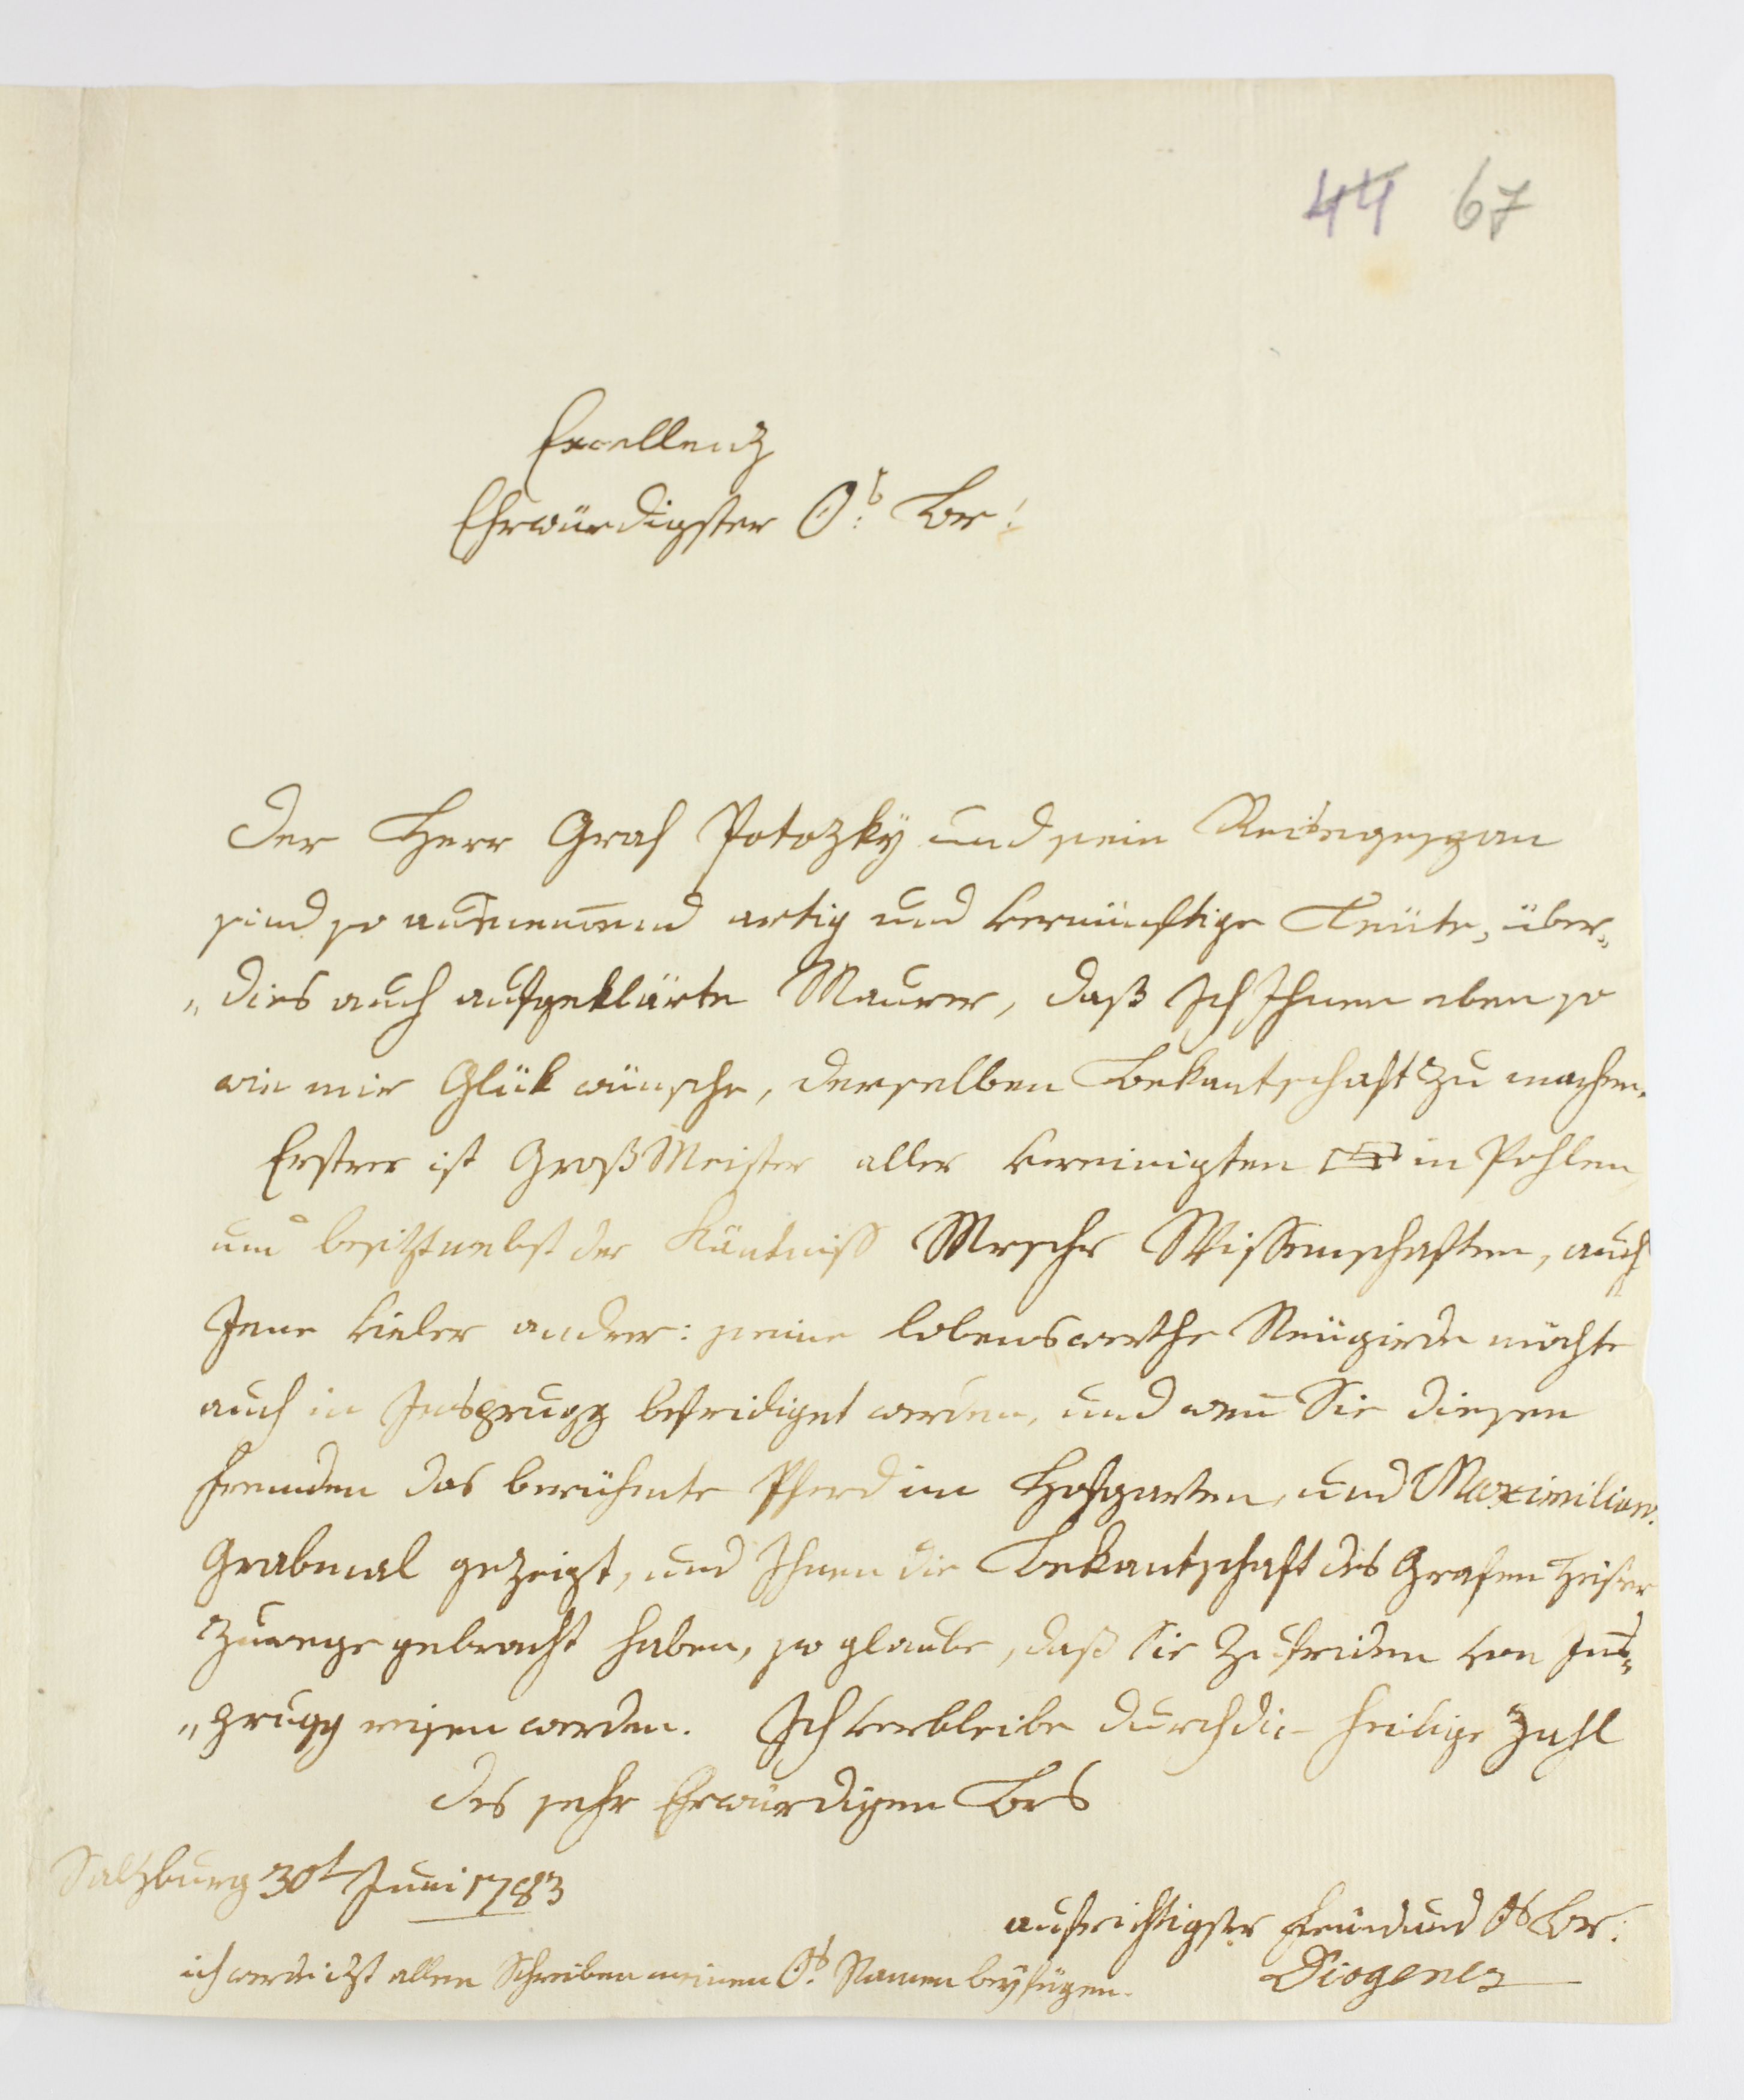 44 67
Excellenz
Ehrwürdigster O:s Br:
Der Herr Graf Potozky und sein Reisegespan
sind so ausnemend artig und vernünftige Leüte, über„
„dies auch aufgeklärte Maurer, daß Ich Ihnen eben so
wie mir Glük wünsche, derselben Bekantschaft zu machen.
Erstrer ist GroßMeister aller vereinigten in Pohlen
und besitzt nebst der Käntniss Mrschr Wissenschaften, auch
Jene vieler andrer: seine lobenswerthe Neügirde möchte
auch in Insprugg befridiget werden, und wen̄ Sie diesen
fremden das berühmte Pferd im Hofgarten, und Maximilian:
Grabmal gezeigt, und Ihnen die Bekantschaft des Grafen
zuwege gebracht haben, so glaube, daß Sie zufriden von Ins„
„prugg reisen werden. Ich verbleibe durch die heilige Zahl
des sehr Ehrwürdigen Brs
Saltzburg 30t Juni 1783
aufrichtigster freund und Os Br:
ich werde izt allen Schreiben meinen O:s Namen beyfügen.
Diogenes